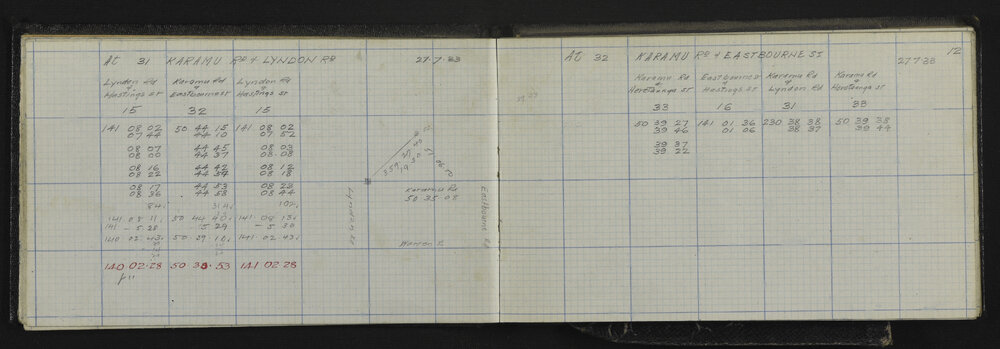 At 31 KARAMU RD & LYNDON RD 27-7-33
Lyndon Rd & Hastings St
Karamu Rd & Eastbourne St
Lyndon Rd & Hastings St
15 32 15
141 08 02 50 44 15 141 08 02
07 44 44 10 07 52
08 07 44 45 08 03
08 00 44 37 08 08
08 16 44 42 08 12
08 22 44 08 18
08 17 44 53 08 23
08 36 44 58 08 44
84 314 102
141 08 11 50 44 40 141 08 13
141 - 5.28 5 29 - 5 30
140 02 43 50 39 141 02 43
140 02 28 50 53 141 02 28
Karamu Rd
50 35 05
Lyndon Rd
Eastbourne Rd
Warren
At 32 KARAMU RD & EASTBOURNE ST 12
27 7 33
Karamu Rd & Heretaunga St
Eastbourne St & Hastings St
Karamu Rd & Lyndon Rd
Karamu Rd & Heretaunga St
33 16 31 33
50 39 27 141 01 36 230 38 38 50 39 38
39 46 01 06 38 37 39 44
39 37
39 22